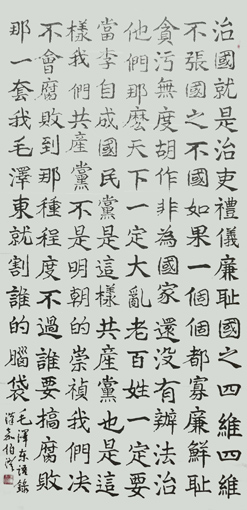 治國就是治吏禮儀廉耻國之四維四維
不張國之不國如果一個個都寡廉鮮耻
貪污無度胡作非為國家還没有辦法治
他們那麼天下一定大亂老百姓一定要
當李自成國民黨是這樣共産黨也是這
樣我們共産黨不是明朝的崇禎我們决
不會腐敗到那種程度不過誰要搞腐敗
那一套我毛澤東就割誰的腦袋
毛泽东语録